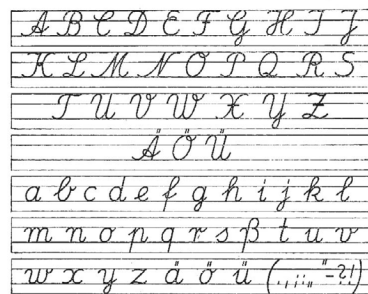 A B C D E F G H I J
K L M N O P Q R S
T U V W X Y Z
Ä Ö Ü
a b c d e f g h i j k l
m n o p q r s ß t u v
w x y z ä ö ü (.,;:„"-?!)